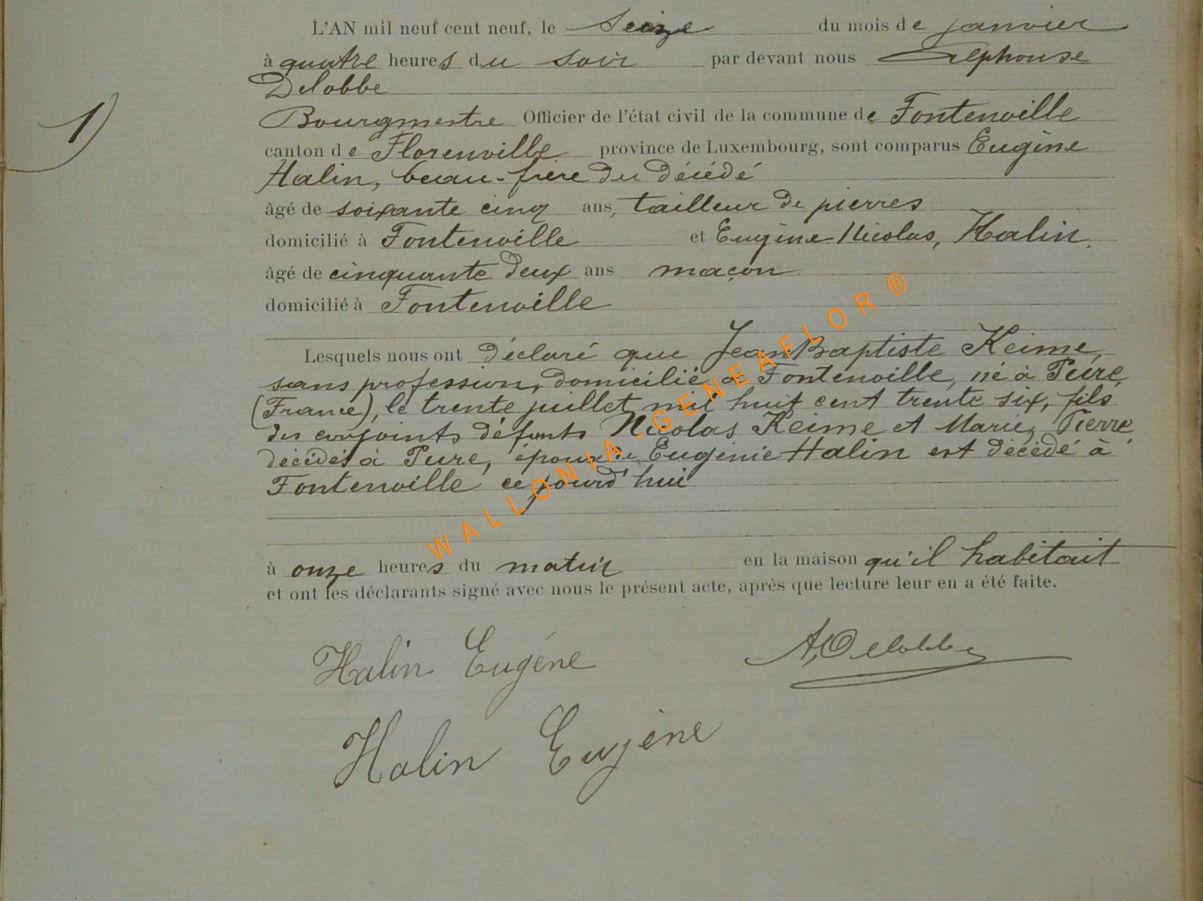 L'AN mil neuf cent neuf, le Seize du mois de janvier
à quatre heures du soir par devant nous Alphonse
Delobbe
1)
Bourgmestre Officier de l'état civil de la commune de Fontenoille
canton de Florenville province de Luxembourg, sont comparus Eugène
Halin, beau-frère du décédé
âgé de soixante cinq ans, tailleur de pierres
domicilié à Fontenoille et Eugène Nicolas, Halin,
âgé de cinquante deux ans maçon
domicilié à Fontenoille
Lesquels nous ont déclaré que Jean Baptiste Keime,
sans profession, domicilié à Fontenoille, né à Pure,
(France), le trente juillet mil huit cent trente six, fils
des conjoints défunts Nicolas Keime et Marie, Pierre
décédés à Pure, époux de Eugénie Halin est décédé à
Fontenoille ce jourd'hui
à onze heures du matin en la maison qu'il habitait
et ont les déclarants signé avec nous le présent acte, après que lecture leur en a été faite.
Halin Eugène A, Delobbe
Halin Eugène
WALLONIA-GENEAFLOR ®